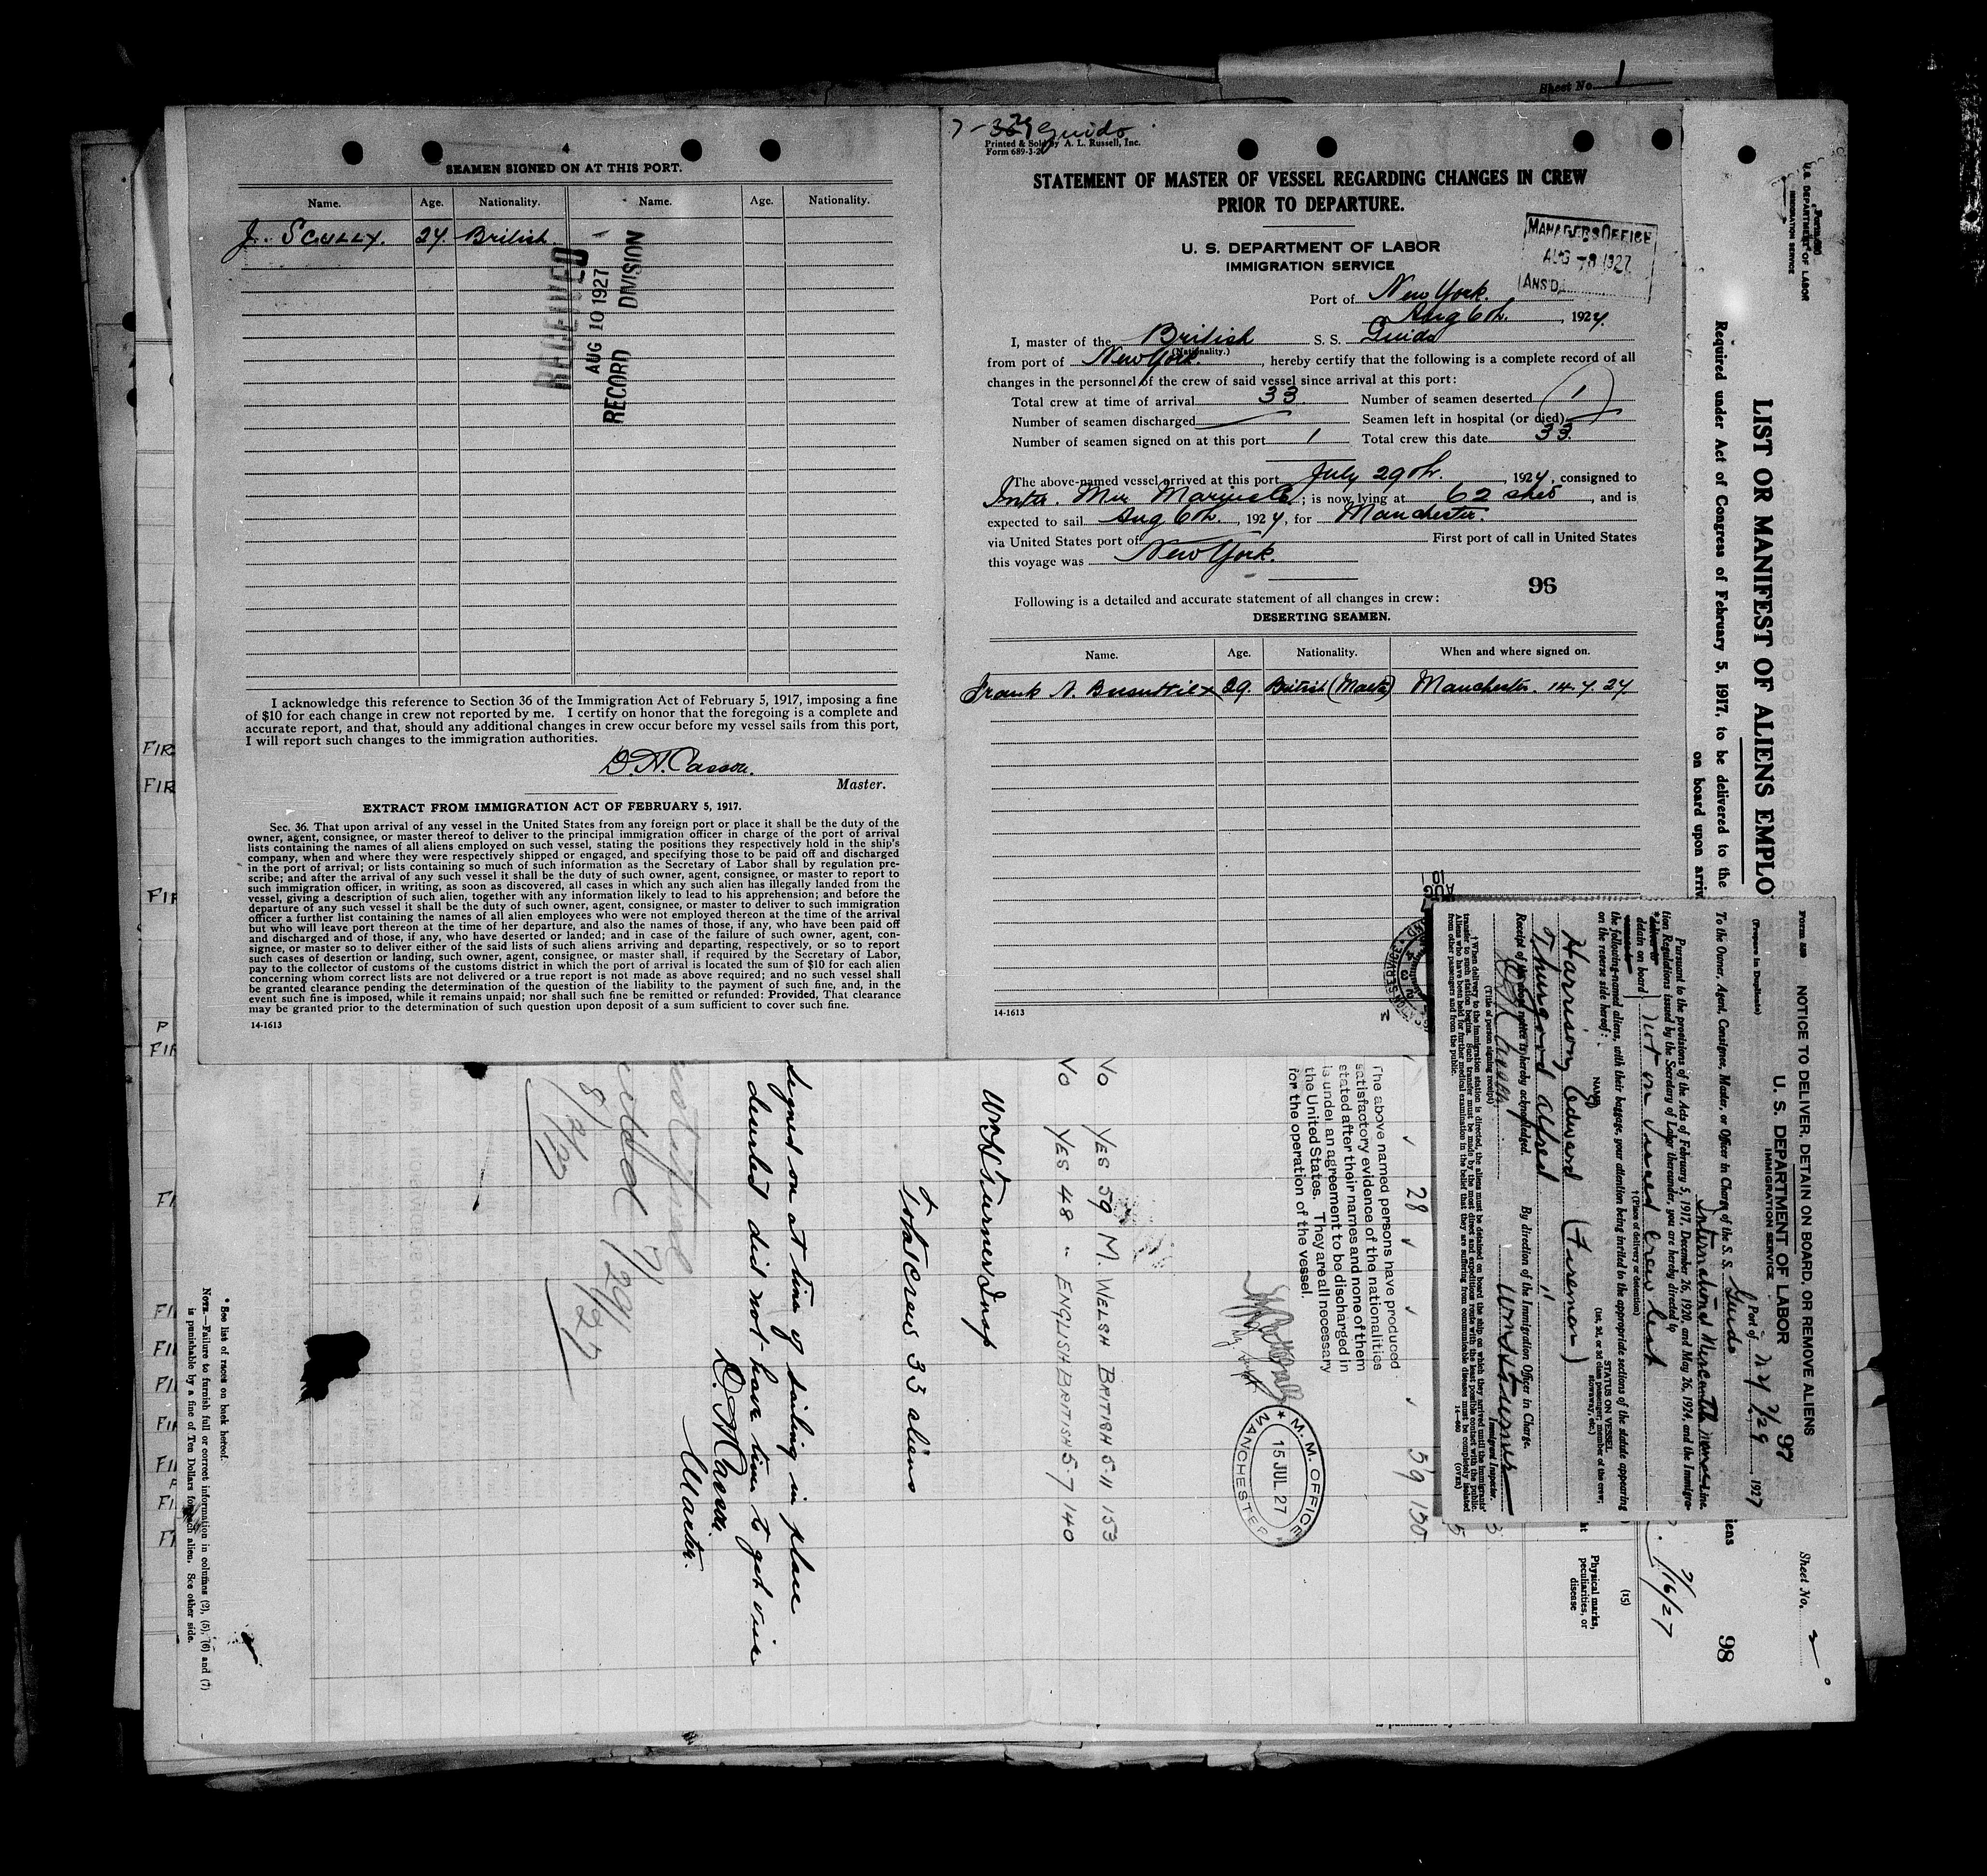 4
SEAMEN SIGNED ON AT THIS PORT.
Name. Age. Nationality. Name. Age. Nationality.
J. SCULLY. 27. British.
RECEIVED
AUG 10 1927
RECORD DIVISION
I acknowledge this reference to Section 36 of the Immigration Act of February 5, 1917, imposing a fine
of $10 for each change in crew not reported by me. I certify on honor that the foregoing is a complete and
accurate report, and that, should any additional changes in crew occur before my vessel sails from this port,
I will report such changes to the immigration authorities.
Master.
EXTRACT FROM IMMIGRATION ACT OF FEBRUARY 5, 1917.
Sec. 36. That upon arrival of any vessel in the United States from any foreign port or place it shall be the duty of the
owner, agent, consignee, or master thereof to deliver to the principal immigration officer in charge of the port of arrival
lists containing the names of all aliens employed on such vessel, stating the positions they respectively hold in the ship's
company, when and where they were respectively shipped or engaged, and specifying those to be paid off and discharged
in the port of arrival; or lists containing so much of such information as the Secretary of Labor shall by regulation pre-
scribe; and after the arrival of any such vessel it shall be the duty of such owner, agent, consignee, or master to report to
such immigration officer, in writing, as soon as discovered, all cases in which any such alien has illegally landed from the
vessel, giving a description of such alien, together with any information likely to lead to his apprehension; and before the
departure of any such vessel it shall be the duty of such owner, agent, consignee, or master to deliver to such immigration
officer a further list containing the names of all alien employees who were not employed thereon at the time of the arrival
but who will leave port thereon at the time of her departure, and also the names of those, if any, who have been paid off
and discharged and of those, if any, who have deserted or landed; and in case of the failure of such owner, agent, con-
signee, or master so to deliver either of the said lists of such aliens arriving and departing, respectively, or so to report
such cases of desertion or landing, such owner, agent, consignee, or master shall, if required by the Secretary of Labor,
pay to the collector of customs of the customs district in which the port of arrival is located the sum of $10 for each alien
concerning whom correct lists are not delivered or a true report is not made as above required; and no such vessel shall
be granted clearance pending the determination of the question of the liability to the payment of such fine, and, in the
event such fine is imposed, while it remains unpaid; nor shall such fine be remitted or refunded: Provided, That clearance
may be granted prior to the determination of such question upon deposit of a sum sufficient to cover such fine.
14-1613
Guido
Printed & Sold by A. L. Russell, Inc.
Form 689-3-2
STATEMENT OF MASTER OF VESSEL REGARDING CHANGES IN CREW
PRIOR TO DEPARTURE.
U. S. DEPARTMENT OF LABOR
IMMIGRATION SERVICE
MANAGERS OFFICE
AUG 1927
ANS'D
Port of New York.
Aug 6th. , 1927.
I, master of the British S. S. Guido
(Nationality.)
from port of New York. , hereby certify that the following is a complete record of all
changes in the personnel of the crew of said vessel since arrival at this port:
Total crew at time of arrival 33 Number of seamen deserted 1
Number of seamen discharged Seamen left in hospital (or died)
Number of seamen signed on at this port 1 Total crew this date 33
The above-named vessel arrived at this port July 29th. , 1927, consigned to
Inter. Mer Marine Co ; is now lying at 62 , and is
expected to sail Aug 6th. , 1927, for Manchester.
via United States port of First port of call in United States
this voyage was New York.
96
Following is a detailed and accurate statement of all changes in crew:
DESERTING SEAMEN.
Name. Age. Nationality. When and where signed on.
Frank 29. British (Malta) Manchester. 14.7.27
14-1613
Sheet No. 1
U.S. DEPARTMENT OF LABOR
IMMIGRATION SERVICE
LIST OR MANIFEST OF ALIENS EMPLO
Required under Act of Congress of February 5, 1917, to be delivered to the
on board upon arriv
Sheet No. 3
98
iens
7/16/27
(15)
Physical marks,
peculiarities, or
disease
NOTICE TO DELIVER, DETAIN ON BOARD, OR REMOVE ALIENS
97
(Prepare in Duplicate)
U. S. DEPARTMENT OF LABOR
IMMIGRATION SERVICE
Port of N Y 7/29 , 1927
To the Owner, Agent, Consignee, Master, or Officer in Charge of the S. S. Guido
International Mercantile Marine Line.
Pursuant to the provisions of the Acts of February 5, 1917, December 26, 1920, and May 26, 1924, and the Immigra-
tion Regulations issued by the Secretary of Labor thereunder, you are hereby directed to
detain on board not on visaed crew list
(Place of delivery or detention)
the following-named aliens, with their baggage, your attention being invited to the appropriate sections of the statute appearing
on the reverse side hereof:
NAMES
STATUS ON VESSEL
(1st, 2d, or 3d class passenger; member of the crew;
stowaway, etc.)
Harrison Edward (Fireman)
Thurgood Alfred "
By direction of the Immigration Officer in Charge.
Receipt of the above notice is hereby acknowledged.
Immigrant Inspector.
(Title of person signing receipt)
† When delivery to the immigration station is directed, the aliens must be detained on board the ship on which they arrived until the immigrants'
transfer to such station begins. Such transfer must be made by the most direct and expeditious route with the least possible contact with the public.
Aliens who have been held for further medical examination in the belief that they are suffering from communicable diseases must be completely isolated
from other passengers and from the public.
(OVER)
28 59 150
The above named persons have produced
satisfactory evidence of the nationalities
stated after their names and none of them
is under an agreement to be discharged in
the United States. They are all necessary
for the operation of the vessel.
M. M. OFFICE
15 JUL 27
MANCHESTER
NO YES 59 M. WELSH BRITISH 5-11 153
NO YES 48 " ENGLISH BRITISH 5-7 140
Wm H Turner Insp
Total crew 33 aliens
Signed on at time of sailing in place
deserted did not have time to get vise
Master.
7/29/27
8/2/27
* See list of races on back hereof.
NOTE.—Failure to furnish full or correct information in columns (2), (5), (6) and (7)
is punishable by a fine of Ten Dollars for each alien. See other side.